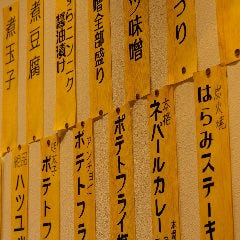 つり
ツ味噌
噌全部盛り
すらニンニク
醤油漬け
煮豆腐
煮玉子
炭火焼
はらみステーキ
本格
ネパールカレー
ポテトフライ
アンチョビ
ポテトフラ
ポテトフ
ハツユッ